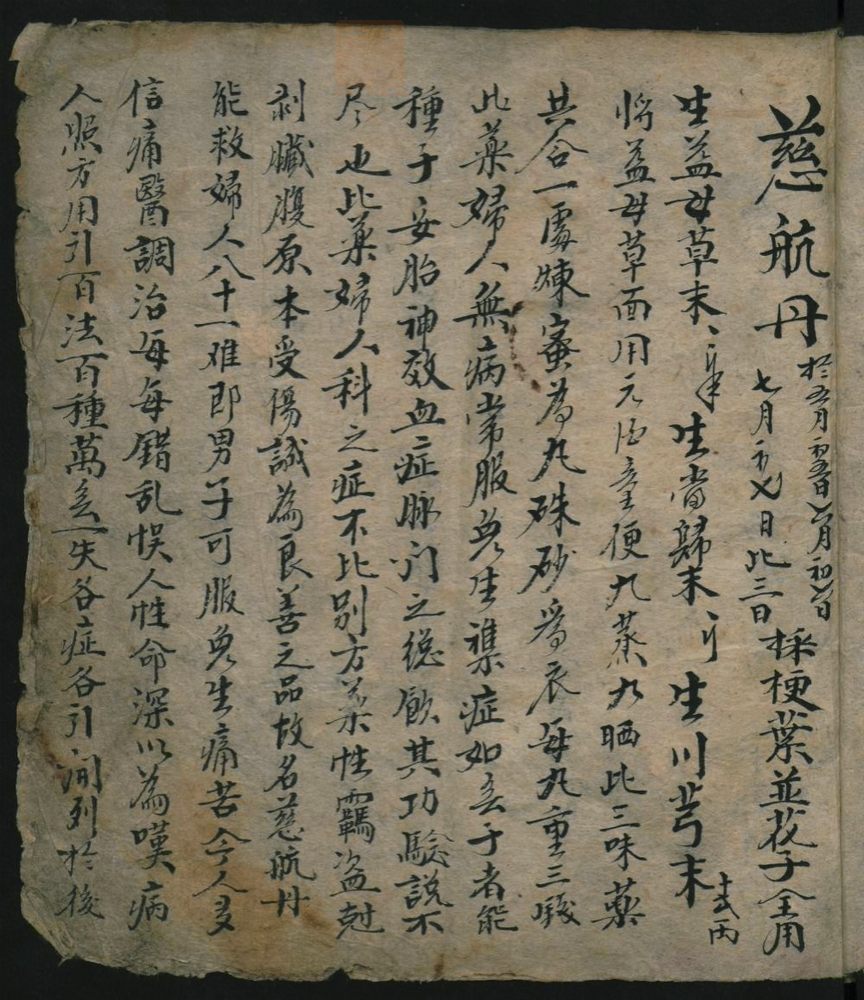 慈航丹 於五月初五日六月初六日
七月初七日此三日 採梗葉並花子全用
生益母草末 生當歸末 生川芎末
將益母草面用元酒童便九蒸九晒此三味藥
共合一處煉蜜為丸硃砂為衣每丸重三錢
此藥婦人無病常服免生襍症如無子者能
種子安胎神效血症脉門之總飲其功驗說不
尽也比藥婦人科之症不比别方茶性霸盗尅
剥臟腹原本受傷誠為良善之品故名慈航丹
能救婦人八十一难即男子可服免生痛苦今人多
信痛醫調治每每錯乱悞人性命深以為嘆病
人照方用引百法百種萬無一失各症各引開列於後